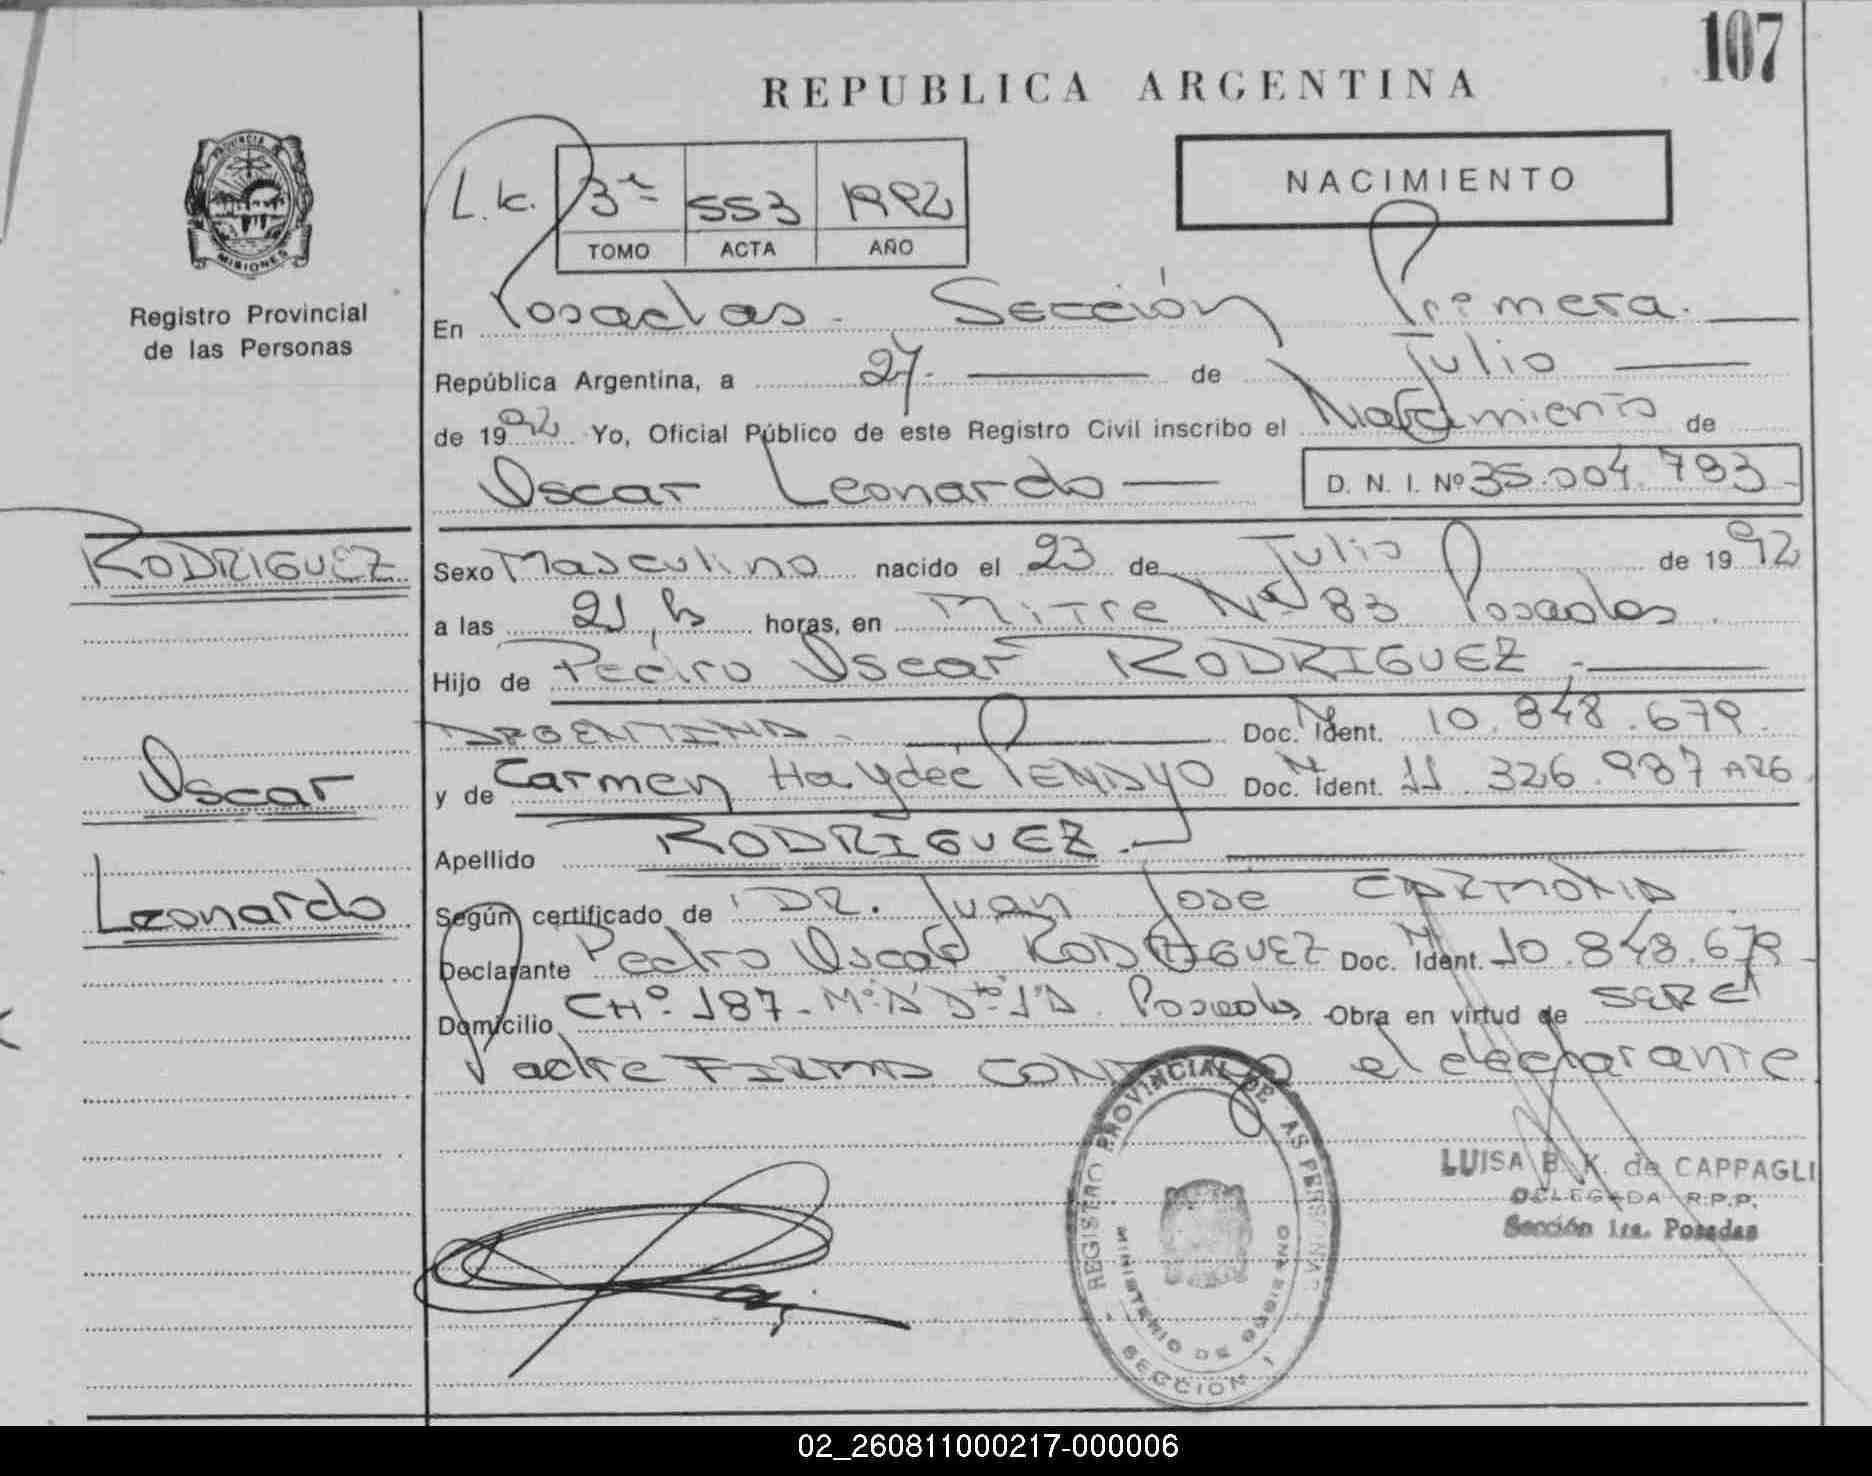 107
REPUBLICA ARGENTINA
PROVINCIA DE MISIONES
Registro Provincial
de las Personas
L.k. 3º 553 1992
TOMO ACTA AÑO
NACIMIENTO
En Posadas. Sección Primera.
República Argentina, a 27. de Julio
de 1992 Yo, Oficial Público de este Registro Civil inscribo el Nacimiento de
Oscar Leonardo D. N. I. Nº 35.004.793
RODRIGUEZ
Sexo Masculino nacido el 23 de Julio de 1992
a las 21 hs horas, en Mitre Nº 83 Posadas.
Hijo de Pedro Oscar RODRIGUEZ.
ARGENTINA - Doc. Ident. 10.848.679.
Oscar
y de Carmen Haydée Doc. Ident. 11.326.987 ARG
Apellido RODRIGUEZ.
Leonardo
Según certificado de DR. Juan José CARMONA
Declarante Pedro Oscar RODRIGUEZ Doc. Ident. 10.848.679
Domicilio CHº 187 - Posadas Obra en virtud de SER el
Padre FIRMA CONMIGO el declarante
REGISTRO PROVINCIAL DE LAS PERSONAS
MINISTERIO DE GOBIERNO
SECCION 1
LUISA B. K. de CAPPAGLI
DELEGADA R.P.P.
Sección 1ra. Posadas
02_260811000217-000006